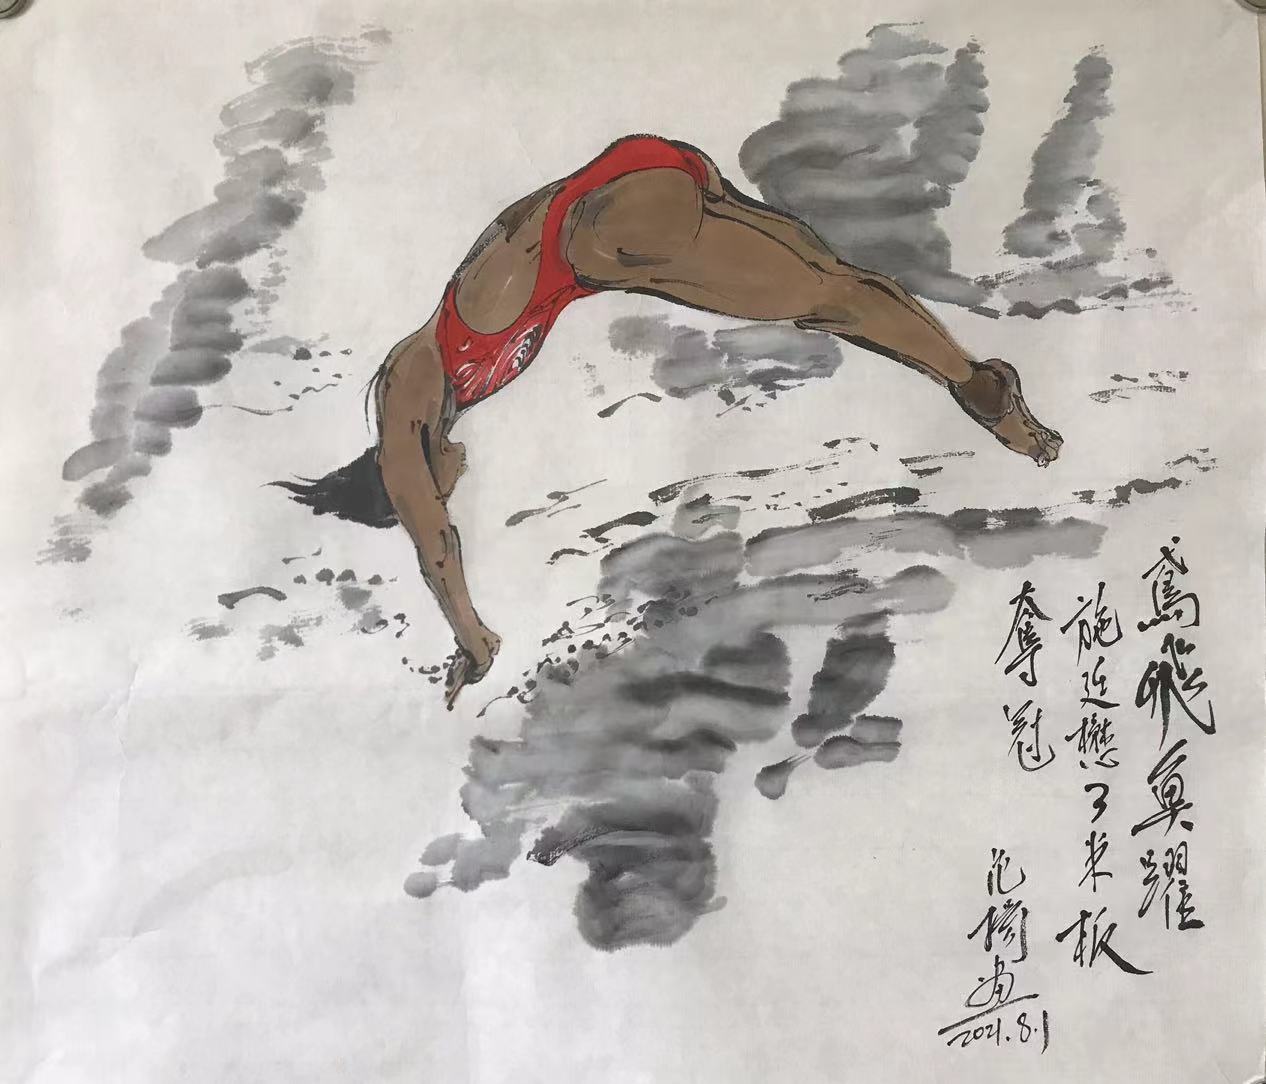 鸢飛魚躍
施廷懋3米板
奪冠
范
画
2021.8.1